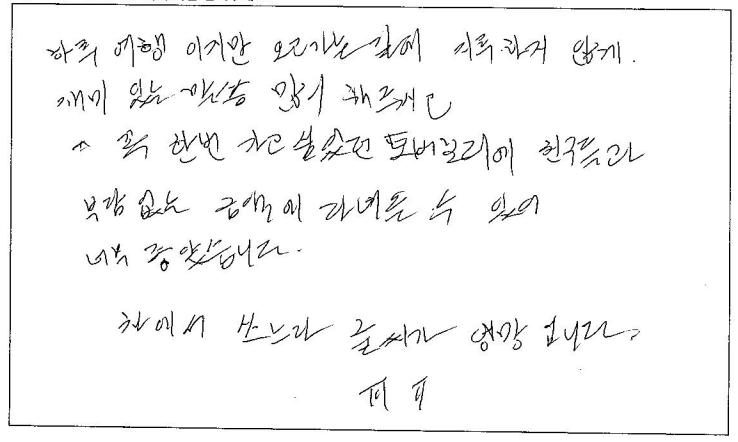 하루 여행 이지만 오고가는 길에 지루하지 않게.
재미 있는 말씀 많이 해주시고
꼭 한번 가고 싶었던 토버모리에 친구들과
부담 없는 금액에 다녀올 수 있어
너무 좋았습니다.
차에서 쓰느라 글씨가 엉망 입니다.
ㅠㅠ